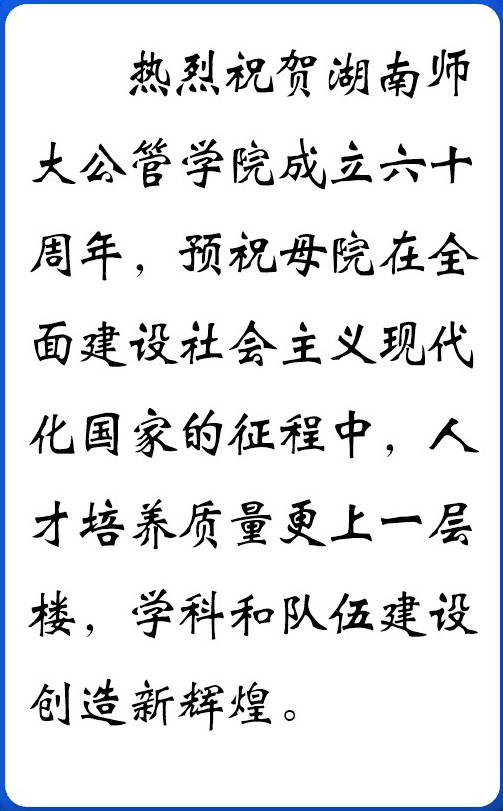 热烈祝贺湖南师
大公管学院成立六十
周年，预祝母院在全
面建设社会主义现代
化国家的征程中，人
才培养质量更上一层
楼，学科和队伍建设
创造新辉煌。